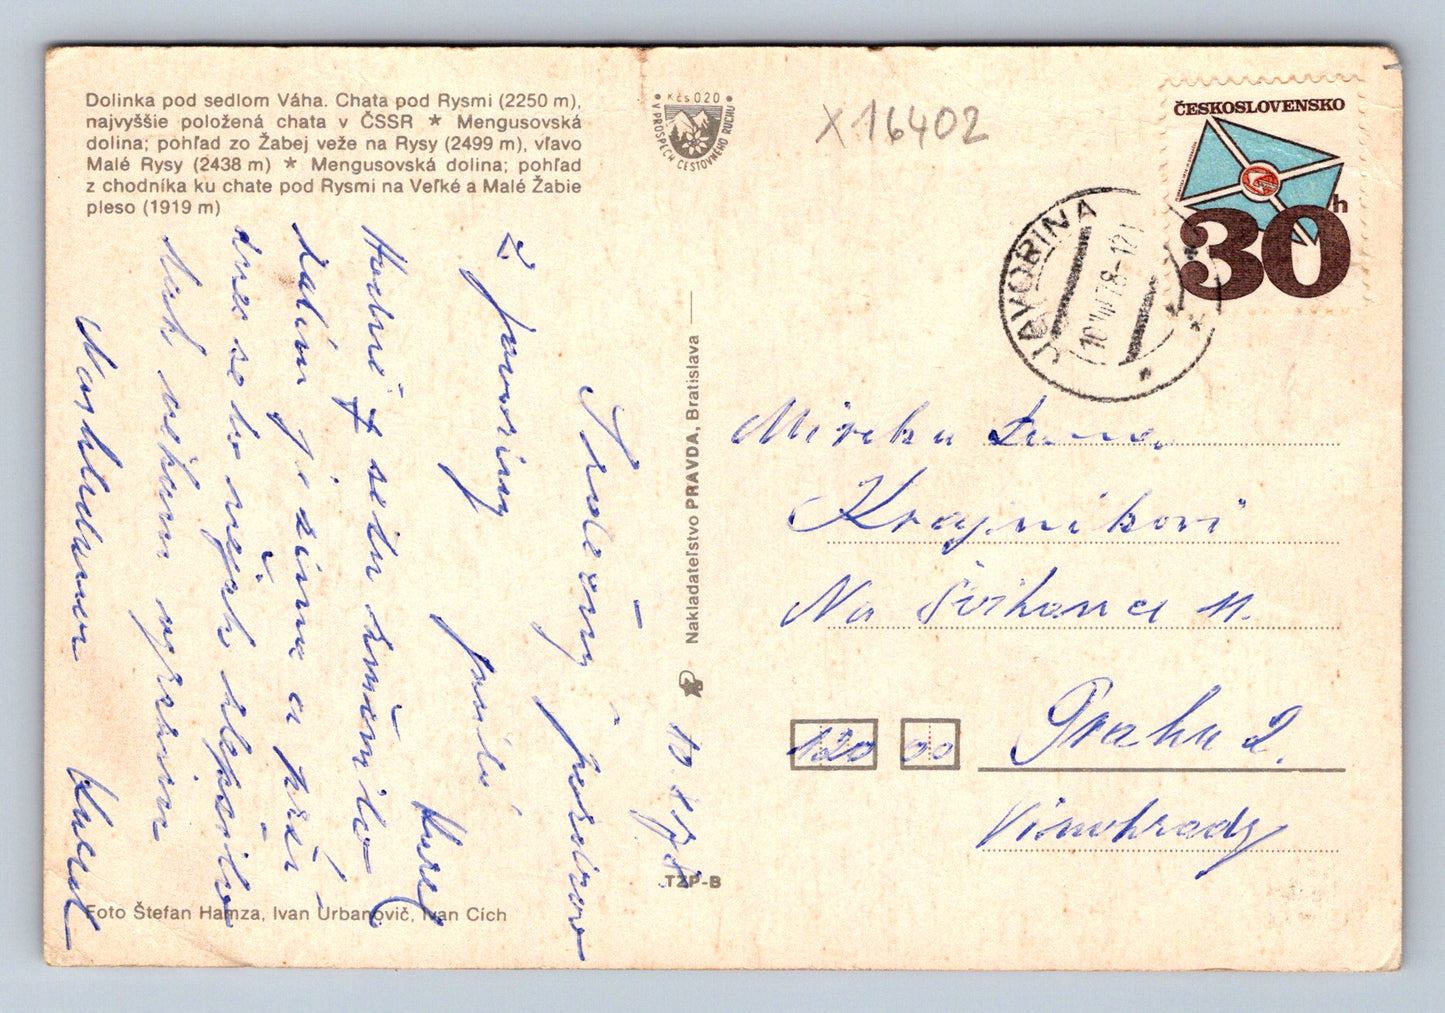 Dolinka pod sedlom Váha. Chata pod Rysmi (2250 m),
najvyššie položená chata v ČSSR * Mengusovská
dolina; pohľad zo Žabej veže na Rysy (2499 m), vľavo
Malé Rysy (2438 m) * Mengusovská dolina; pohľad
z chodníka ku chate pod Rysmi na Veľké a Malé Žabie
pleso (1919 m)
Kčs 020
V PROSPECH CESTOVNÉHO RUCHU
X 16402
ČESKOSLOVENSKO
30h
JAVORINA
10.8.78
Srdečný pozdrav
z Javoriny posílá Karel
Hodně se tu změnilo
zatím je zima a prší
dnes se to nějak
tak
Nakladateľstvo PRAVDA, Bratislava
TZP-B
Foto Štefan Hamza, Ivan Urbanovič, Ivan Cích
Mirek
Krajníkovi
Na Švihance 11.
120 00 Praha 2.
Vinohrady